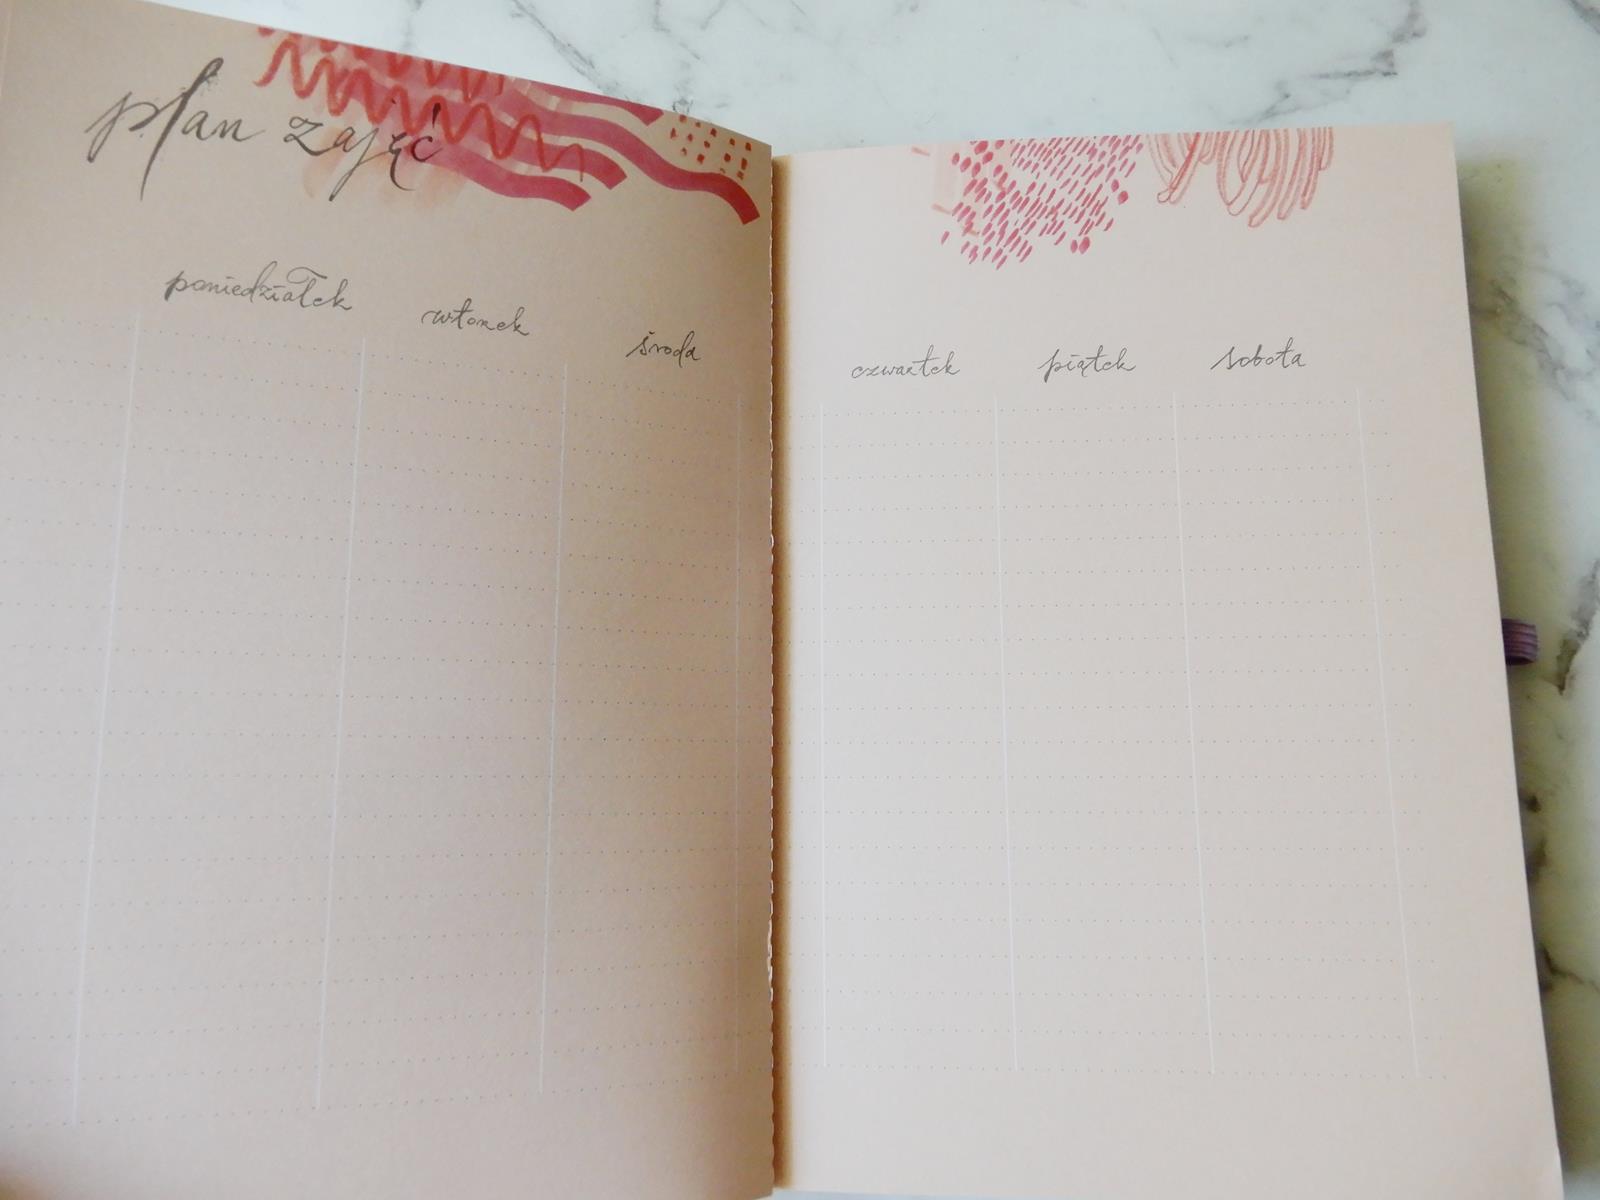 plan zajęć
poniedziałek wtorek środa
czwartek piątek sobota